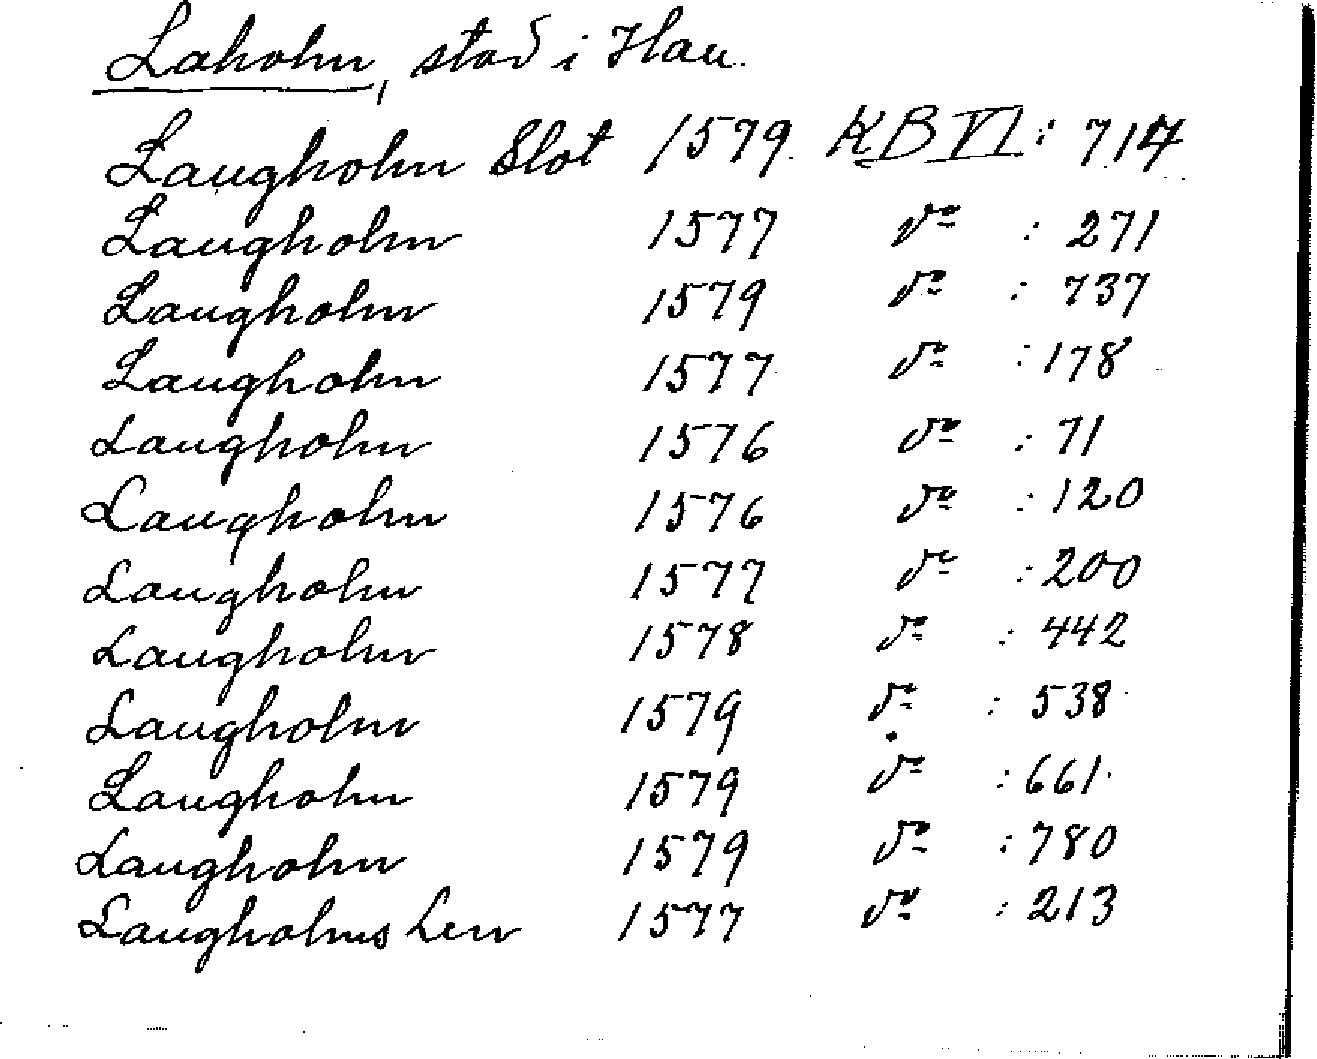 Laholm, stad i Hall.
Laugholm Slot 1579 KB VI : 714
Laugholm 1577 do : 271
Laugholm 1579 do : 737
Laugholm 1577 do : 178
Laugholm 1576 do : 71
Laugholm 1576 do : 120
Laugholm 1577 do : 200
Laugholm 1578 do : 442
Laugholm 1579 do : 538
Laugholm 1579 do : 661
Laugholm 1579 do : 780
Laugholms Len 1577 do : 213